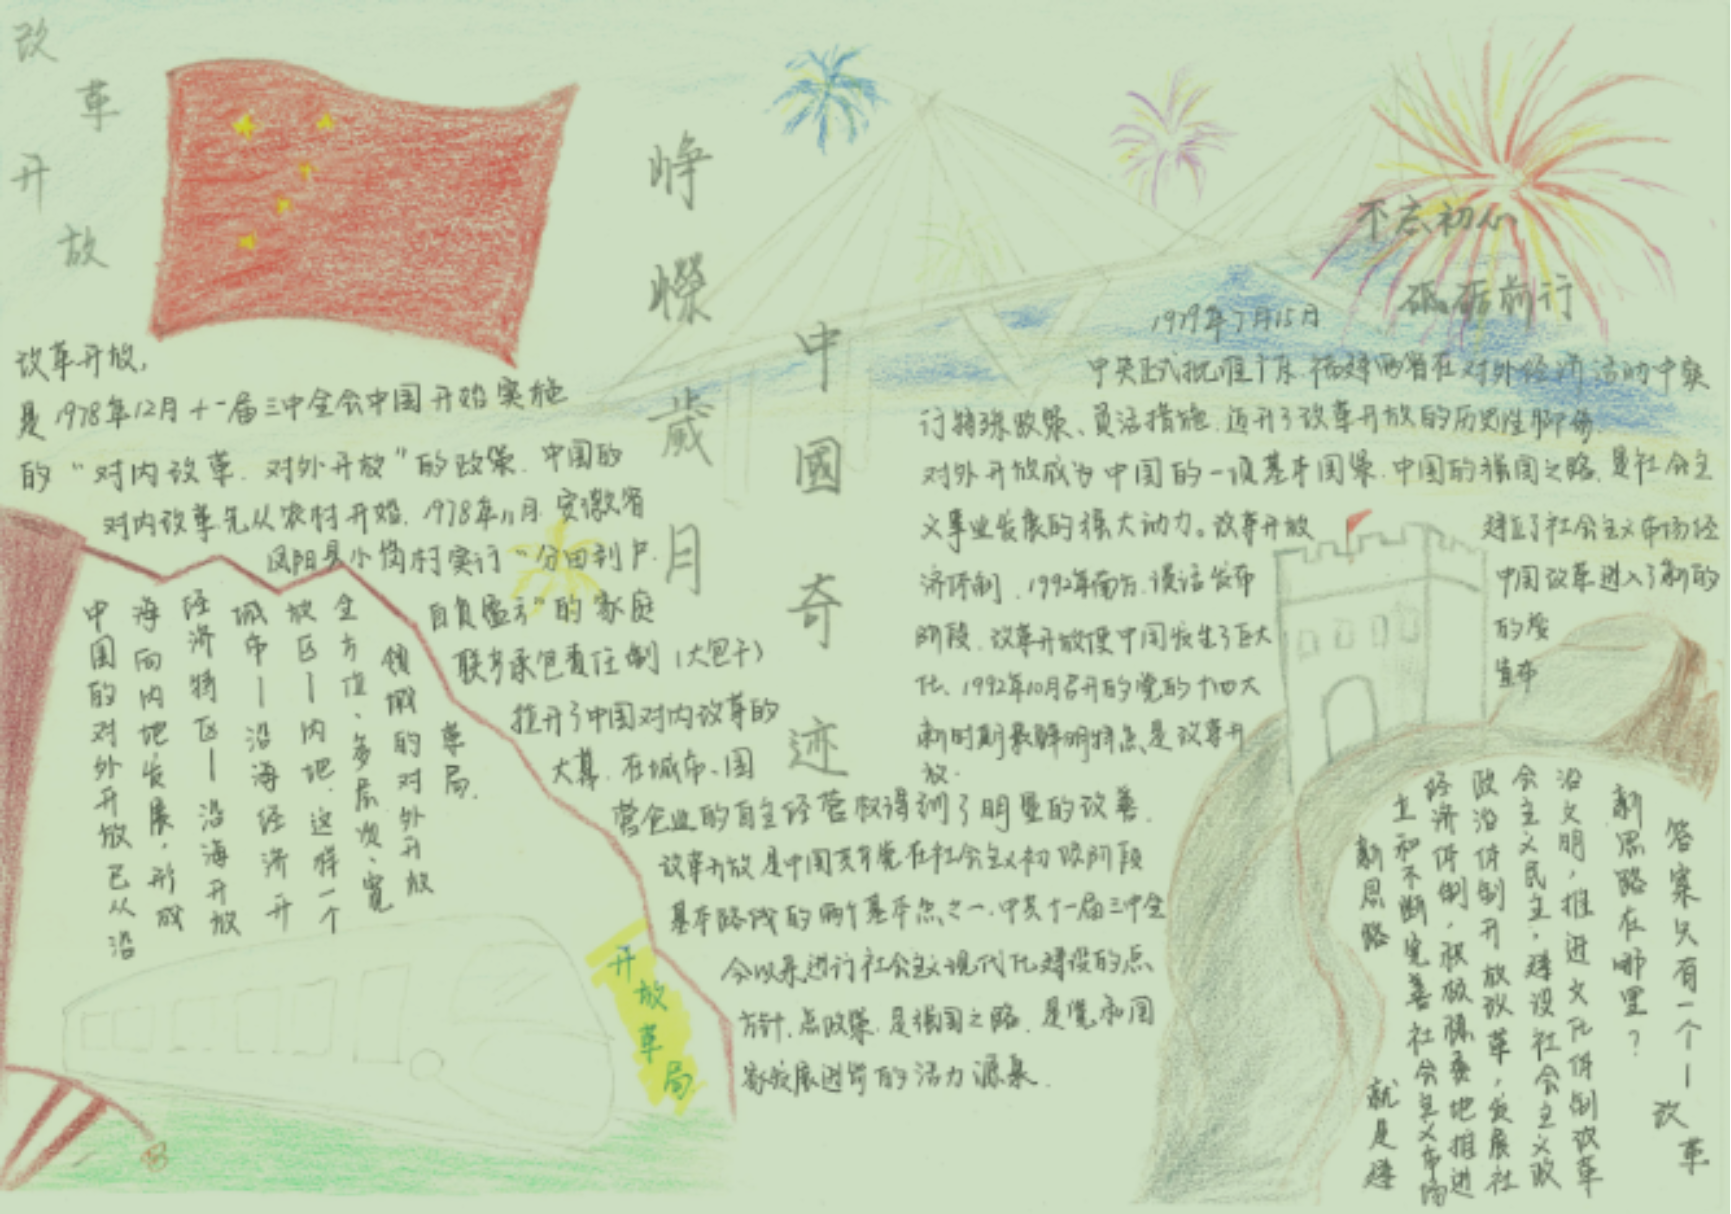 改
革
开
放
峥
嵘
歲
月
中
國
奇
迹
不忘初心
砥砺前行
改革开放,
是1978年12月十一届三中全会中国开始实施
的“对内改革.对外开放”的政策.中国的
对内改革先从农村开始.1978年11月.安徽省
凤阳县小岗村实行“分田到户.
自负盈亏”的家庭
联产承包责任制(大包干)
拉开了中国对内改革的
大幕.在城市、国
营企业的自主经营权得到了明显的改善.
改革开放是中国共产党在社会主义初级阶段
基本路线的两个基本点之一.中共十一届三中全
会以来进行社会主义现代化建设的点
方针.点政策.是强国之路.是党和国
家发展进步的活力源泉.
中国的对外开放已从沿
海向内地发展,形成
经济特区—沿海开放
城市—沿海经济开
放区—内地.这样一个
全方位、多层次、宽
领域的对外开放
革局.
开放革局
1979年7月15日
中央正式批准广东.福建两省在对外经济活动中实
行特殊政策、灵活措施.迈开了改革开放的历史性脚步.
对外开放成为中国的一项基本国策.中国的强国之路.是社会主
义事业发展的强大动力。改革开放 建立了社会主义市场经
济体制.1992年南方.谈话发布 中国改革进入了新的
阶段.改革开放使中国发生了巨大 的变
化.1992年10月召开的党的十四大 宣布
新时期最鲜明特点是改革开
放.
答案只有一个—改革
新思路在哪里?
沿文明,推进文化体制改革
会主义民主,建设社会主义政
政治体制开放改革,发展社
经济体制,积极稳妥地推进
立和不断完善社会主义市场
新思路 就是建